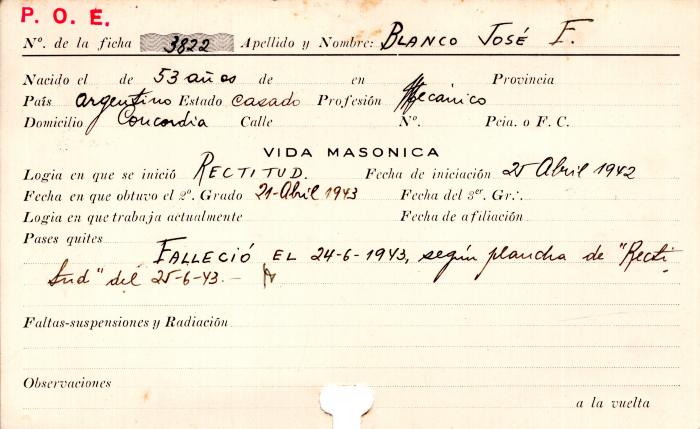 P. O. E.
Nº. de la ficha 3822 Apellido y Nombre: BLANCO JOSÉ F.
Nacido el de 53 años de en Provincia
País argentino Estado casado Profesión Mecánico
Domicilio Concordia Calle Nº. Pcia. o F. C.
VIDA MASONICA
Logia en que se inició RECTITUD. Fecha de iniciación 25 Abril 1942
Fecha en que obtuvo el 2º. Grado 21-Abril 1943 Fecha del 3er. Gr∴
Logia en que trabaja actualmente Fecha de afiliación
Pases quites
FALLECIÓ EL 24-6-1943, según plancha de "Recti
tud" del 25-6-43.-
Faltas-suspensiones y Radiación
Observaciones
a la vuelta